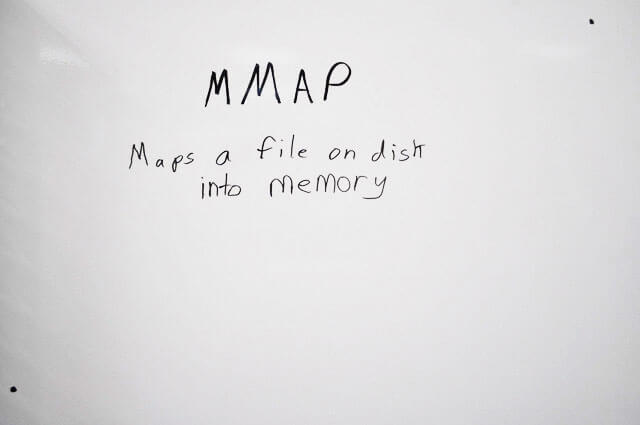 MMAP
Maps a file on disk
into memory